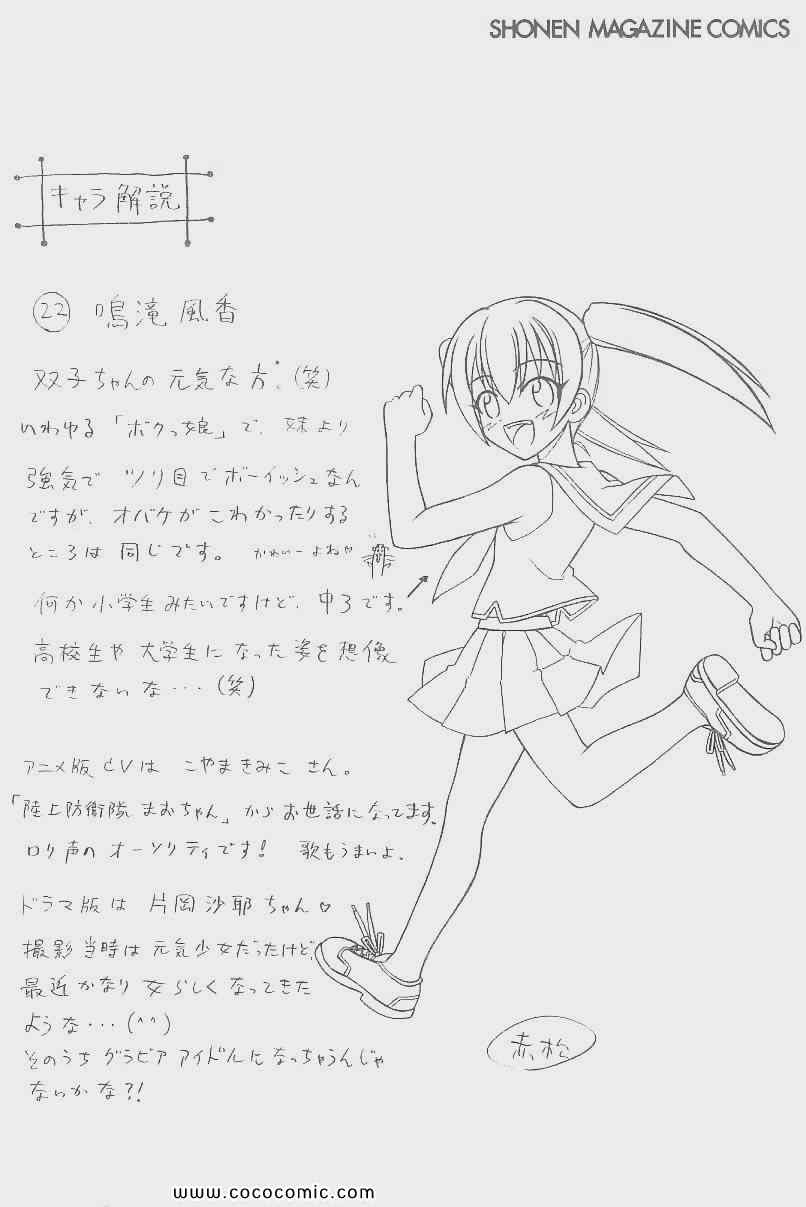 SHONEN MAGAZINE COMICS
キャラ解説
㉒ 鳴滝風香
双子ちゃんの元気な方。(笑)
いわゆる「ボクっ娘」で、妹より
強気でツリ目でボーイッシュなん
ですが、オバケがこわかったりする
ところは同じです。 かわいーよねー
何か小学生みたいですけど、中3です。
高校生や大学生になった姿を想像
できないな…(笑)
アニメ版CVは こやまきみこ さん。
「陸上防衛隊まおちゃん」からお世話になってます。
ロリ声のオーソリティです! 歌もうまいよ。
ドラマ版は 片岡沙耶ちゃん♡
撮影当時は元気少女だったけど、
最近かなり女らしくなってきた
ような…(^^)
そのうちグラビアアイドルになっちゃうんじゃ
ないかな?!
赤松
www.cococomic.com